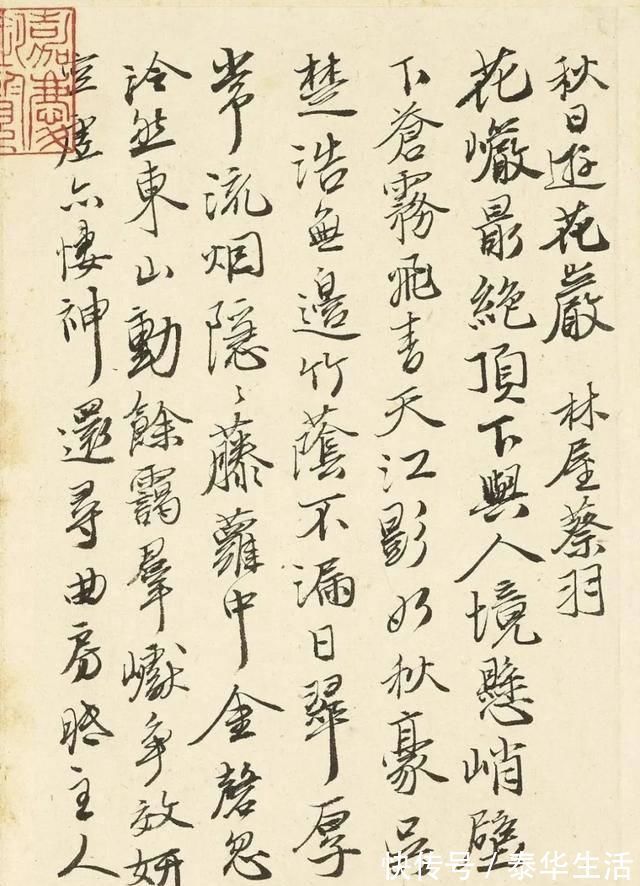 秋日遊花巖 林屋蔡羽
花巖最絶頂下與人境懸峭壁
下蒼霧飛青天江影如秋豪吴
楚浩無邊竹蔭不漏日翠厚
常流烟隱〻藤蘿中金磬忽
泠然東山動餘靄羣巘争效妍
亦悽神還尋曲房 主人
嘉慶
快传号 / 泰华生活